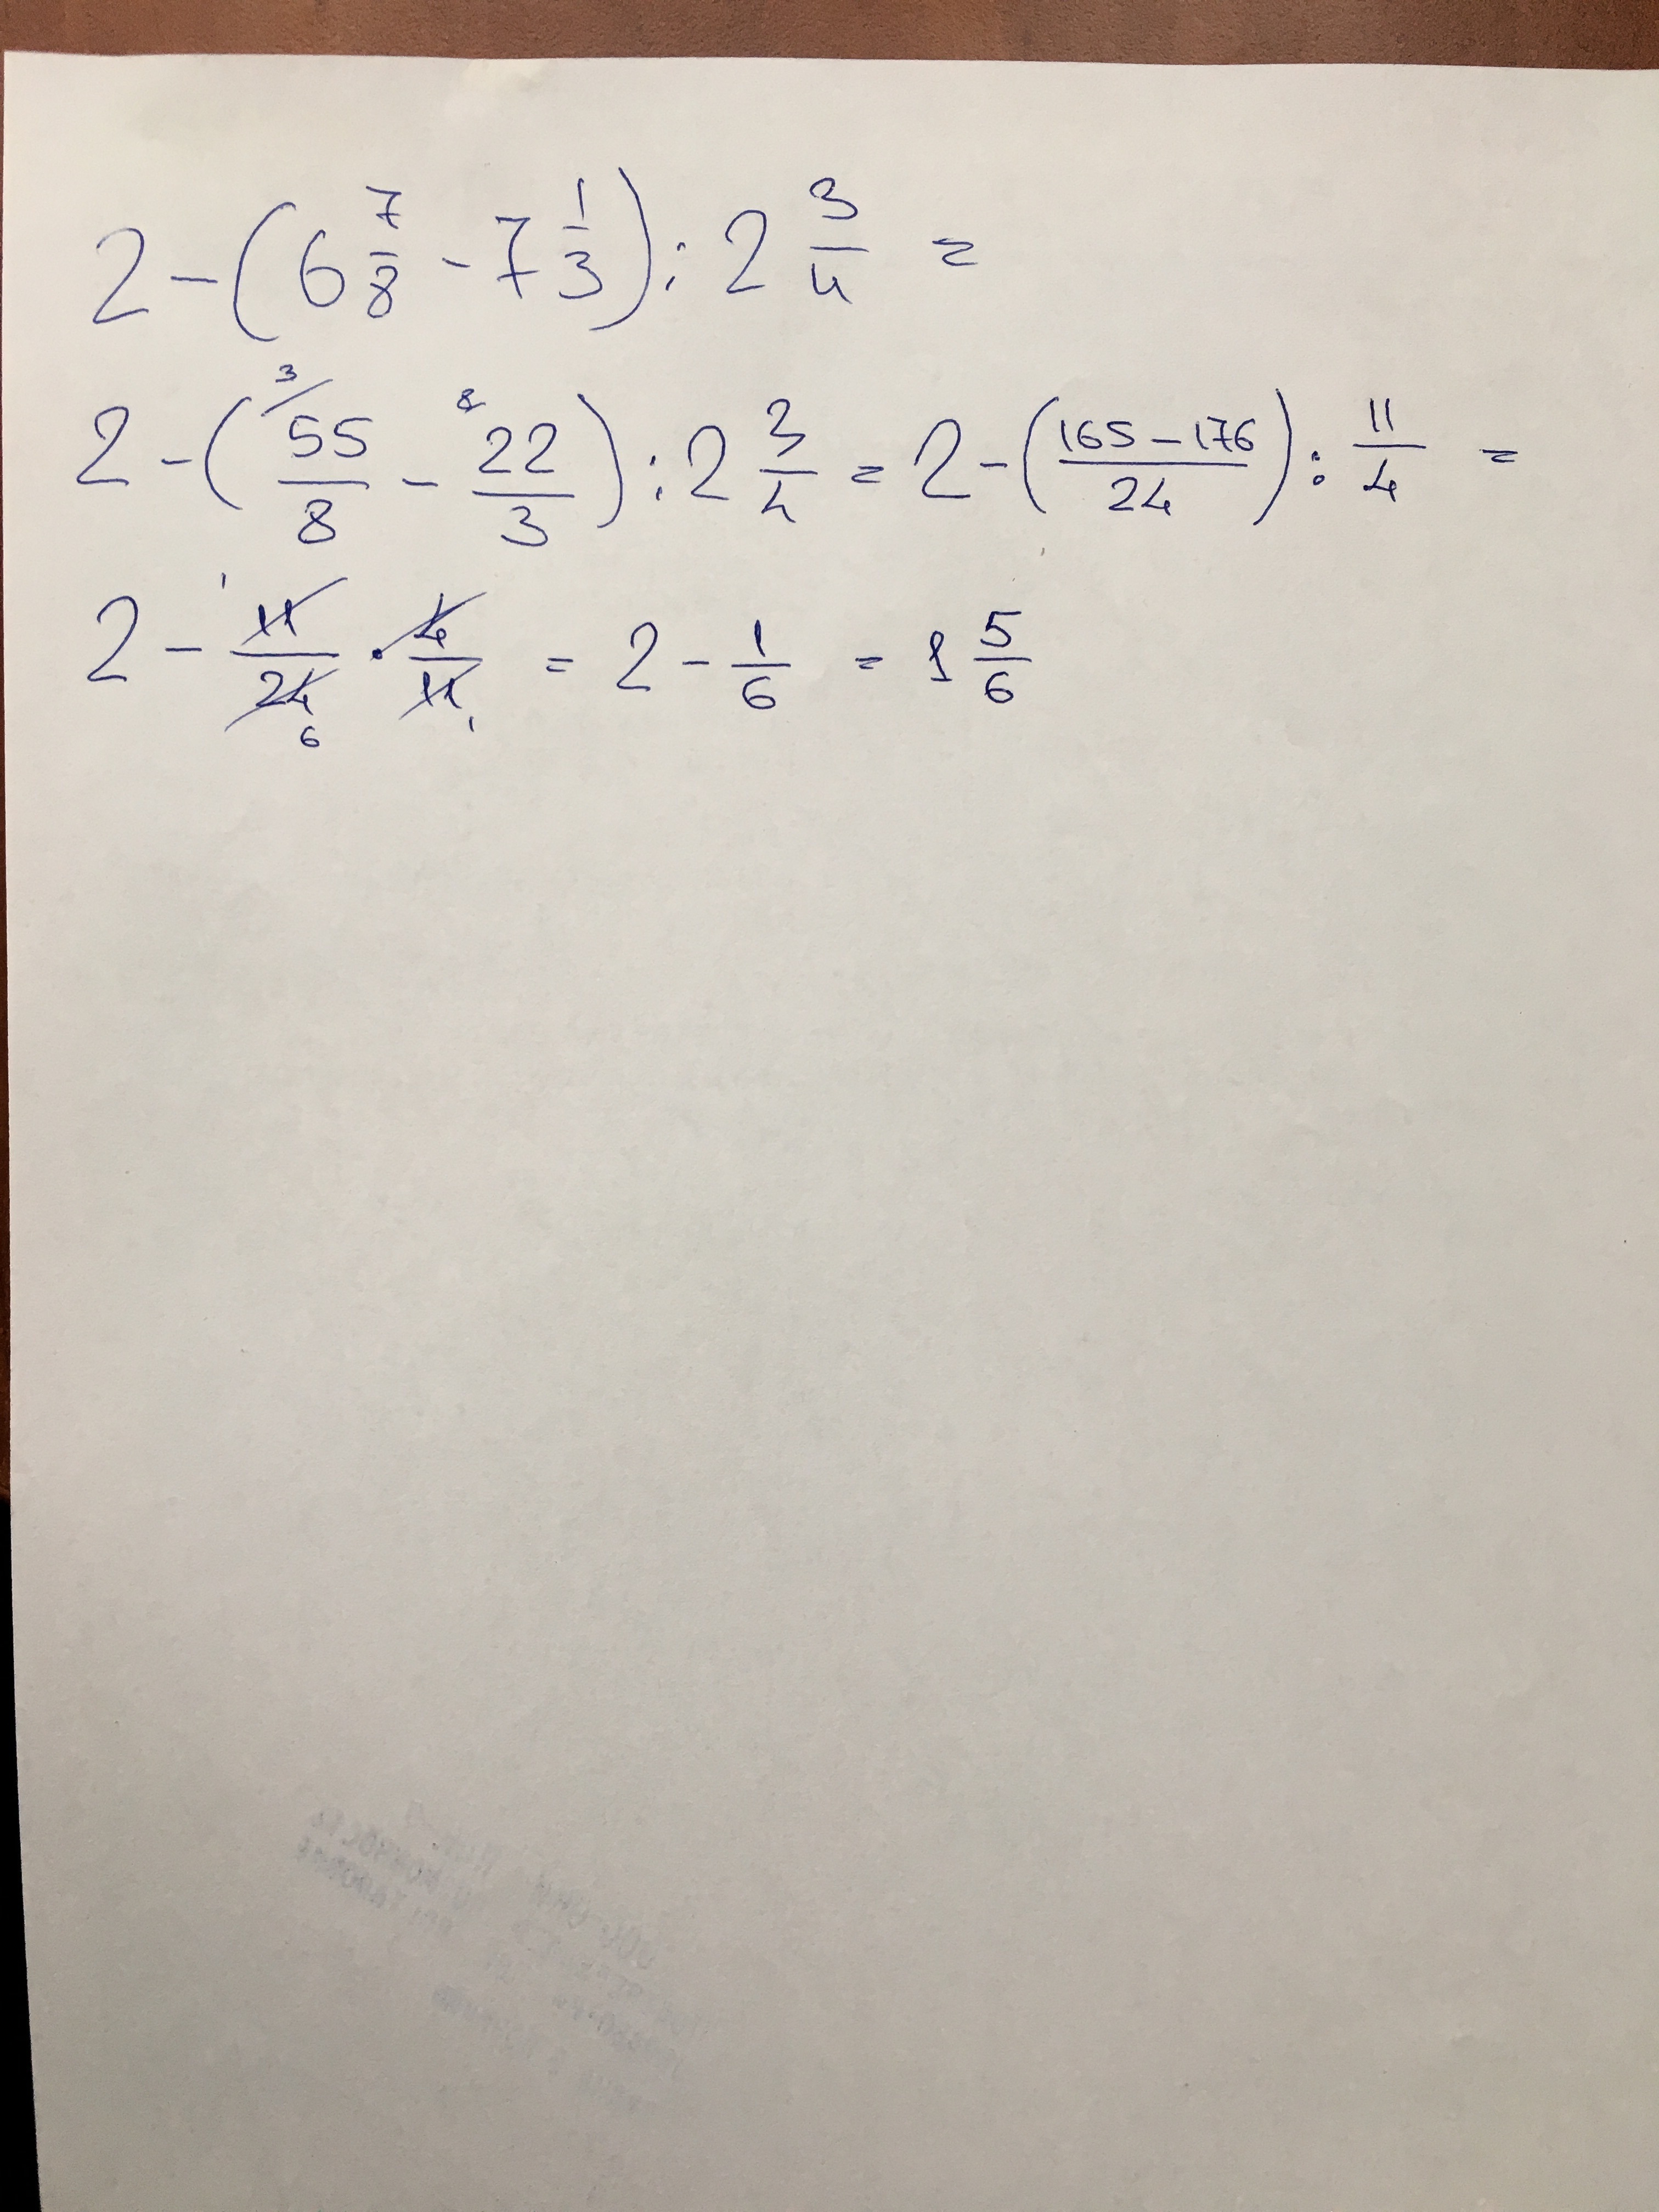 2 - (6 7/8 - 7 1/3) : 2 3/4 =
2 - (3/ 55/8 - 8/ 22/3) : 2 3/4 = 2 - (165 - 176/24) : 11/4 =
2 - 1 11/24 6 · 4/11 1 = 2 - 1/6 = 1 5/6